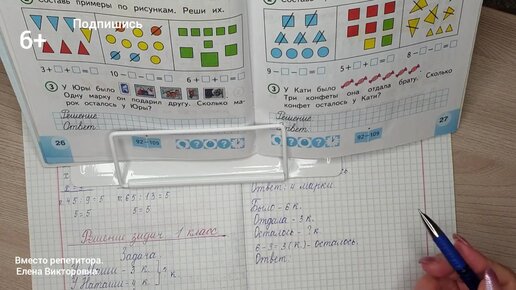 Подпишись
6+
Составь примеры по рисункам. Реши их.
3 + □ = □
10 − □ = □
6 + □ = □
3 У Юры было
Одну марку он подарил другу. Сколько ма-
рок осталось у Юры?
Решение.
Ответ:
26
92—109
9 − □ = □
5 + □ = □
8 − □ = □
3 У Кати было
Три конфеты она отдала брату. Сколько
конфет осталось у Кати?
Решение.
Ответ:
92—109
27
5=5
5=5
Решение задач 1 класс
Задача
Наташи - 4 к.
Ответ: 4 марки
Было - 6 к.
Отдала - 3 к.
Осталось - ? к
6-3=3 (к.) - осталось.
Ответ
Вместо репетитора.
Елена Викторовна